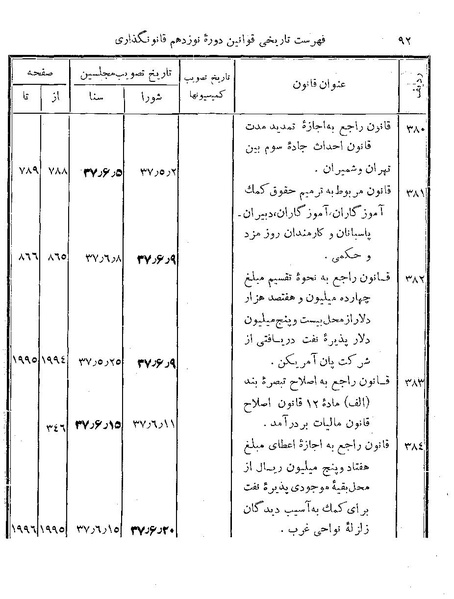 ۹۲
فهرست تاریخی قوانین دورهٔ نوزدهم قانونگذاری
ردیف
عنوان قانون
تاریخ تصویب کمیسیونها
تاریخ تصویب مجلسین
صفحه
شورا
سنا
از
تا
۳۸۰
قانون راجع به اجازهٔ تمدید مدت
قانون احداث جادهٔ سوم بین
تهران و شمیران .
۳۷٫۵٫۲
۳۷٫۶٫۵
۷۸۸
۷۸۹
۳۸۱
قانون مربوط به ترمیم حقوق کمک
آموزگاران، آموزگاران، دبیران ـ
پاسبانان و کارمندان روز مزد
و حکمی .
۳۷٫۶٫۹
۳۷٫۶٫۸
۸۶۵
۸۶۶
۳۸۲
قـانون راجع به نحوهٔ تقسیم مبلغ
چهارده میلیون و هفتصد هزار
دلار از محل بیست و پنج میلیون
دلار پذیرهٔ نفت دریافتی از
شرکت پان آمریکن .
۳۷٫۶٫۹
۳۷٫۵٫۲۵
۱۹۹۴
۱۹۹۵
۳۸۳
قـانون راجع به اصلاح تبصرهٔ بند
(الف) مادهٔ ۱۲ قانون اصلاح
قانون مالیات بردرآمد .
۳۷٫۶٫۱۱
۳۷٫۶٫۱۵
۳۴۶
۳۸۴
قانون راجع به اجازهٔ اعطای مبلغ
هفتاد و پنج میلیون ریـال از
محل بقیهٔ موجودی پذیرهٔ نفت
برای کمک به آسیب دیدگان
زلزلهٔ نواحی غرب .
۳۷٫۶٫۲۰
۳۷٫۶٫۱۵
۱۹۹۵
۱۹۹۶